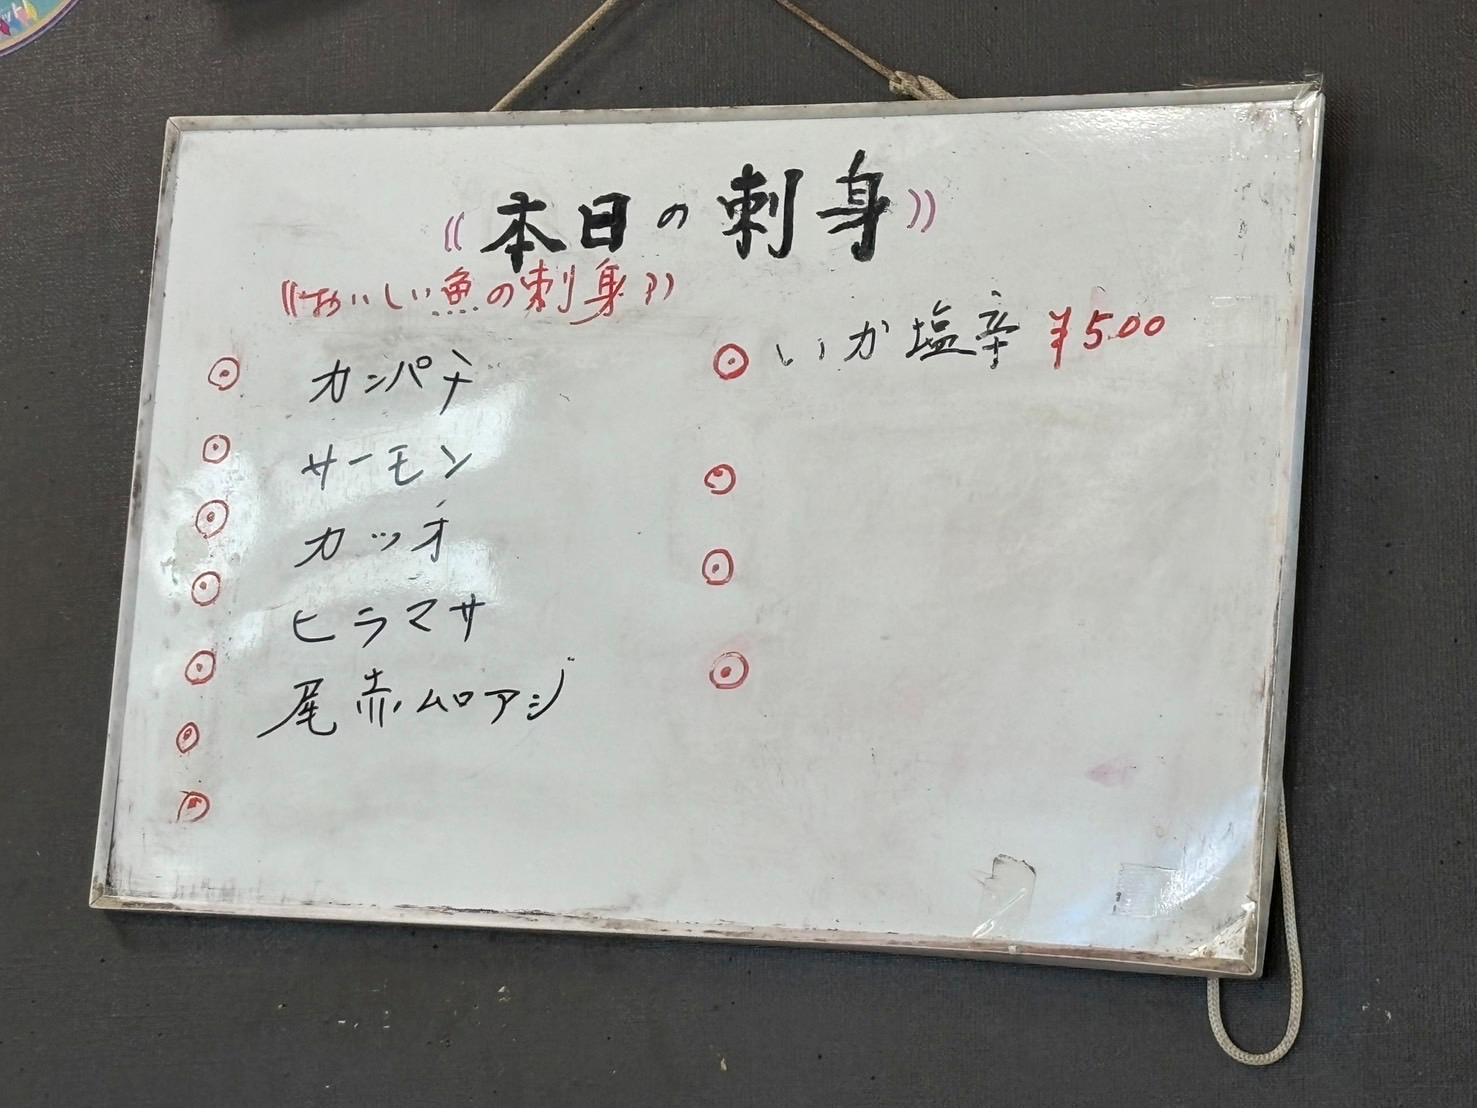 《本日の刺身》
《おいしい魚の刺身》
◎ カンパチ
◎ サーモン
◎ カツオ
◎ ヒラマサ
◎ 尾赤ムロアジ
◎
◎
◎ いか塩辛 ¥500
◎
◎
◎